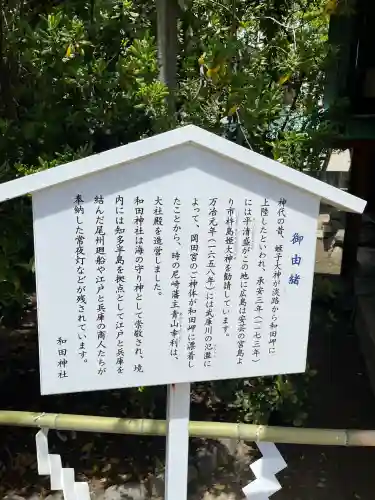 御由緒
神代の昔、蛭子大神が淡路から和田岬に
上陸したといわれ、承安三年(一一七三年)
には平清盛がこの地に兵庫津に安芸の宮島よ
り市杵島姫大神を勧請しています。
万治元年(一六五八年)には武庫川の氾濫に
よって、岡田宮のご神体が和田岬に漂着し
たことから、時の尼崎藩主青山幸利は、
大社殿を造営しました。
和田神社は海の守り神として崇敬され、境
内には知多半島を拠点として江戸と兵庫を
結んだ尾州廻船や江戸と兵庫の商人たちが
奉納した常夜灯などが残されています。
和田神社